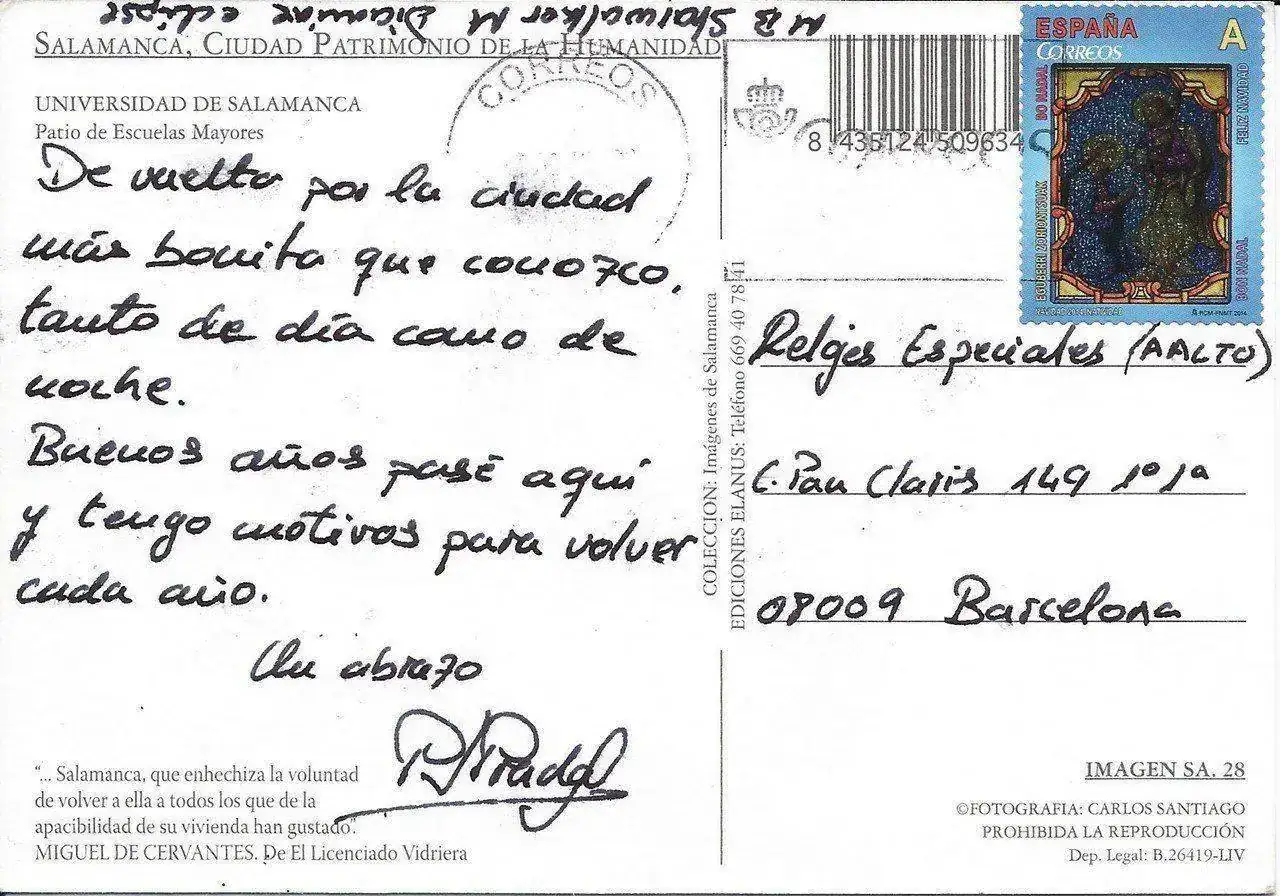 M B Starwalker M Dicaminx eclipse
SALAMANCA, CIUDAD PATRIMONIO DE LA HUMANIDAD
UNIVERSIDAD DE SALAMANCA
Patio de Escuelas Mayores
De vuelta por la ciudad
más bonita que conozco,
tanto de día como de
noche.
Buenos años pasé aquí
y tengo motivos para volver
cada año.
Un abrazo
"... Salamanca, que enhechiza la voluntad
de volver a ella a todos los que de la
apacibilidad de su vivienda han gustado".
MIGUEL DE CERVANTES. De El Licenciado Vidriera
COLECCION: Imágenes de Salamanca
EDICIONES ELANUS: Teléfono 669 40 78 41
CORREOS
8 435124 509634
ESPAÑA
CORREOS
A
BO NADAL
FELIZ NAVIDAD
EGUBERRI ZORIONTSUAK
BON NADAL
NAVIDAD 2014. NATIVIDAD
RCM-FNMT 2014
Relojes Especiales (AALTO)
C. Pau Claris 149 1º 1ª
08009 Barcelona
IMAGEN SA. 28
©FOTOGRAFIA: CARLOS SANTIAGO
PROHIBIDA LA REPRODUCCIÓN
Dep. Legal: B.26419-LIV